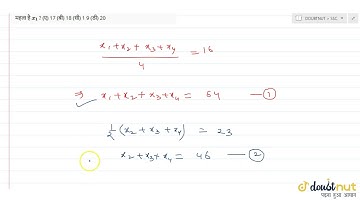 महला है x₁ ? (ए) 17 (बी) 18 (सी) 1 9 (डी) 20
DOUBTNUT > 16C
(x₁+x₂ + x₃+xy)/4 = 16
⇒ x₁+x₂+x₃+x₄ = 64 — ①
½ (x₂+x₃+xy) = 23
x₂+x₃+x₄ = 46 — ②
doubtnut
पढ़ना हुआ आसान